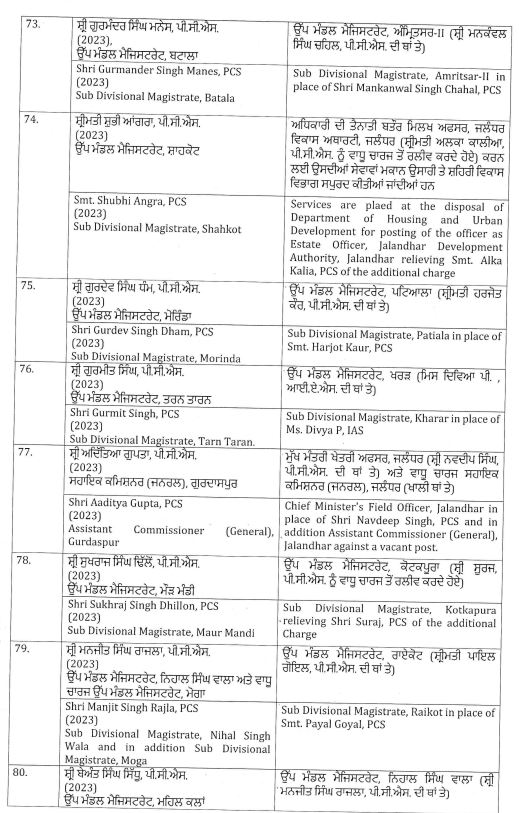 73.
ਸ਼੍ਰੀ ਗੁਰਮੰਦਰ ਸਿੰਘ ਮਨੇਸ, ਪੀ.ਸੀ.ਐਸ.
(2023),
ਉੱਪ ਮੰਡਲ ਮੈਜਿਸਟਰੇਟ, ਬਟਾਲਾ
ਉੱਪ ਮੰਡਲ ਮੈਜਿਸਟਰੇਟ, ਅੰਮ੍ਰਿਤਸਰ-II (ਸ਼੍ਰੀ ਮਨਕੰਵਲ
ਸਿੰਘ ਚਹਿਲ, ਪੀ.ਸੀ.ਐਸ. ਦੀ ਥਾਂ ਤੇ)
Shri Gurmander Singh Manes, PCS
(2023)
Sub Divisional Magistrate, Batala
Sub Divisional Magistrate, Amritsar-II in
place of Shri Mankanwal Singh Chahal, PCS
74.
ਸ਼੍ਰੀਮਤੀ ਸ਼ੁਭੀ ਆਂਗਰਾ, ਪੀ.ਸੀ.ਐਸ.
(2023)
ਉੱਪ ਮੰਡਲ ਮੈਜਿਸਟਰੇਟ, ਸ਼ਾਹਕੋਟ
ਅਧਿਕਾਰੀ ਦੀ ਤੈਨਾਤੀ ਬਤੌਰ ਮਿਲਖ ਅਫਸਰ, ਜਲੰਧਰ
ਵਿਕਾਸ ਅਥਾਰਟੀ, ਜਲੰਧਰ (ਸ਼੍ਰੀਮਤੀ ਅਲਕਾ ਕਾਲੀਆ,
ਪੀ.ਸੀ.ਐਸ. ਨੂੰ ਵਾਧੂ ਚਾਰਜ ਤੋਂ ਰਲੀਵ ਕਰਦੇ ਹੋਏ) ਕਰਨ
ਲਈ ਉਸਦੀਆਂ ਸੇਵਾਵਾਂ ਮਕਾਨ ਉਸਾਰੀ ਤੇ ਸ਼ਹਿਰੀ ਵਿਕਾਸ
ਵਿਭਾਗ ਸਪੁਰਦ ਕੀਤੀਆਂ ਜਾਂਦੀਆਂ ਹਨ
Smt. Shubhi Angra, PCS
(2023)
Sub Divisional Magistrate, Shahkot
Services are plaed at the disposal of
Department of Housing and Urban
Development for posting of the officer as
Estate Officer, Jalandhar Development
Authority, Jalandhar relieving Smt. Alka
Kalia, PCS of the additional charge
75.
ਸ਼੍ਰੀ ਗੁਰਦੇਵ ਸਿੰਘ ਧੰਮ, ਪੀ.ਸੀ.ਐਸ.
(2023)
ਉੱਪ ਮੰਡਲ ਮੈਜਿਸਟਰੇਟ, ਮੋਰਿੰਡਾ
ਉੱਪ ਮੰਡਲ ਮੈਜਿਸਟਰੇਟ, ਪਟਿਆਲਾ (ਸ਼੍ਰੀਮਤੀ ਹਰਜੋਤ
ਕੌਰ, ਪੀ.ਸੀ.ਐਸ. ਦੀ ਥਾਂ ਤੇ)
Shri Gurdev Singh Dham, PCS
(2023)
Sub Divisional Magistrate, Morinda
Sub Divisional Magistrate, Patiala in place of
Smt. Harjot Kaur, PCS
76.
ਸ਼੍ਰੀ ਗੁਰਮੀਤ ਸਿੰਘ, ਪੀ.ਸੀ.ਐਸ.
(2023)
ਉੱਪ ਮੰਡਲ ਮੈਜਿਸਟਰੇਟ, ਤਰਨ ਤਾਰਨ
ਉੱਪ ਮੰਡਲ ਮੈਜਿਸਟਰੇਟ, ਖਰੜ (ਮਿਸ ਦਿਵਿਆ ਪੀ. ,
ਆਈ.ਏ.ਐਸ. ਦੀ ਥਾਂ ਤੇ)
Shri Gurmit Singh, PCS
(2023)
Sub Divisional Magistrate, Tarn Taran.
Sub Divisional Magistrate, Kharar in place of
Ms. Divya P, IAS
77.
ਸ਼੍ਰੀ ਅਦਿੱਤਿਆ ਗੁਪਤਾ, ਪੀ.ਸੀ.ਐਸ.
(2023)
ਸਹਾਇਕ ਕਮਿਸ਼ਨਰ (ਜਨਰਲ), ਗੁਰਦਾਸਪੁਰ
ਮੁੱਖ ਮੰਤਰੀ ਖੇਤਰੀ ਅਫਸਰ, ਜਲੰਧਰ (ਸ਼੍ਰੀ ਨਵਦੀਪ ਸਿੰਘ,
ਪੀ.ਸੀ.ਐਸ. ਦੀ ਥਾਂ ਤੇ) ਅਤੇ ਵਾਧੂ ਚਾਰਜ ਸਹਾਇਕ
ਕਮਿਸ਼ਨਰ (ਜਨਰਲ), ਜਲੰਧਰ (ਖਾਲੀ ਥਾਂ ਤੇ)
Shri Aaditya Gupta, PCS
(2023)
Assistant Commissioner (General),
Gurdaspur
Chief Minister's Field Officer, Jalandhar in
place of Shri Navdeep Singh, PCS and in
addition Assistant Commissioner (General),
Jalandhar against a vacant post.
78.
ਸ਼੍ਰੀ ਸੁਖਰਾਜ ਸਿੰਘ ਢਿੱਲੋਂ, ਪੀ.ਸੀ.ਐਸ.
(2023)
ਉੱਪ ਮੰਡਲ ਮੈਜਿਸਟਰੇਟ, ਮੌੜ ਮੰਡੀ
ਉੱਪ ਮੰਡਲ ਮੈਜਿਸਟਰੇਟ, ਕੋਟਕਪੂਰਾ (ਸ਼੍ਰੀ ਸੂਰਜ,
ਪੀ.ਸੀ.ਐਸ. ਨੂੰ ਵਾਧੂ ਚਾਰਜ ਤੋਂ ਰਲੀਵ ਕਰਦੇ ਹੋਏ)
Shri Sukhraj Singh Dhillon, PCS
(2023)
Sub Divisional Magistrate, Maur Mandi
Sub Divisional Magistrate, Kotkapura
relieving Shri Suraj, PCS of the additional
Charge
79.
ਸ਼੍ਰੀ ਮਨਜੀਤ ਸਿੰਘ ਰਾਜਲਾ, ਪੀ.ਸੀ.ਐਸ.
(2023)
ਉੱਪ ਮੰਡਲ ਮੈਜਿਸਟਰੇਟ, ਨਿਹਾਲ ਸਿੰਘ ਵਾਲਾ ਅਤੇ ਵਾਧੂ
ਚਾਰਜ ਉੱਪ ਮੰਡਲ ਮੈਜਿਸਟਰੇਟ, ਮੋਗਾ
ਉੱਪ ਮੰਡਲ ਮੈਜਿਸਟਰੇਟ, ਰਾਏਕੋਟ (ਸ਼੍ਰੀਮਤੀ ਪਾਇਲ
ਗੋਇਲ, ਪੀ.ਸੀ.ਐਸ. ਦੀ ਥਾਂ ਤੇ)
Shri Manjit Singh Rajla, PCS
(2023)
Sub Divisional Magistrate, Nihal Singh
Wala and in addition Sub Divisional
Magistrate, Moga
Sub Divisional Magistrate, Raikot in place of
Smt. Payal Goyal, PCS
80.
ਸ਼੍ਰੀ ਬੇਅੰਤ ਸਿੰਘ ਸਿੱਧੂ, ਪੀ.ਸੀ.ਐਸ.
(2023)
ਉੱਪ ਮੰਡਲ ਮੈਜਿਸਟਰੇਟ, ਮਹਿਲ ਕਲਾਂ
ਉੱਪ ਮੰਡਲ ਮੈਜਿਸਟਰੇਟ, ਨਿਹਾਲ ਸਿੰਘ ਵਾਲਾ (ਸ਼੍ਰੀ
ਮਨਜੀਤ ਸਿੰਘ ਰਾਜਲਾ, ਪੀ.ਸੀ.ਐਸ. ਦੀ ਥਾਂ ਤੇ)